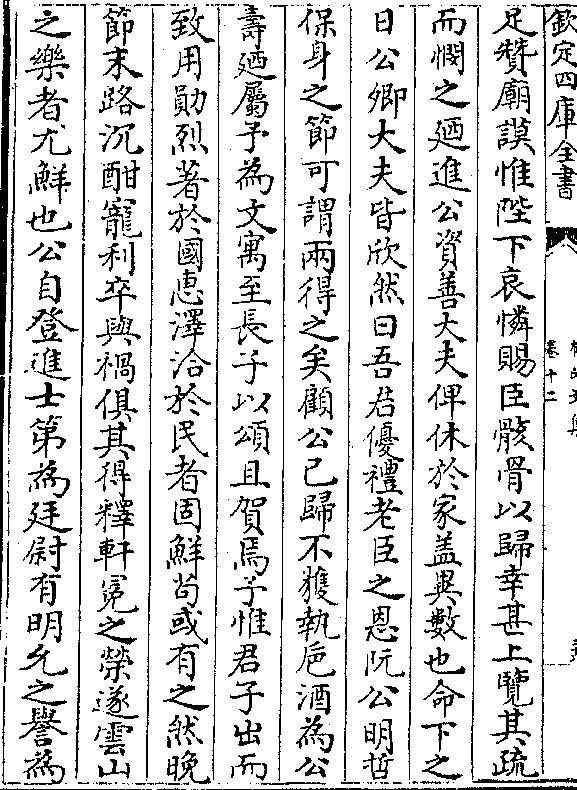 欽定四庫全書
卷十二
足贊廟謨惟陛下哀憐賜臣骸骨以歸幸甚上覽其疏
而憫之廼進公資善大夫俾休於家盖異數也命下之
日公卿大夫皆欣然曰吾君優禮老臣之恩阮公明哲
保身之節可謂兩得之矣顧公已歸不獲執巵酒為公
壽廼屬予為文寓至長子以頌且賀焉予惟君子出而
致用勛烈著於國惠澤洽於民者固鮮茍或有之然晚
節末路沉酣寵利卒與禍俱其得釋軒冕之榮遂雲山
之樂者尤鮮也公自登進士第為廷尉有明允之譽為